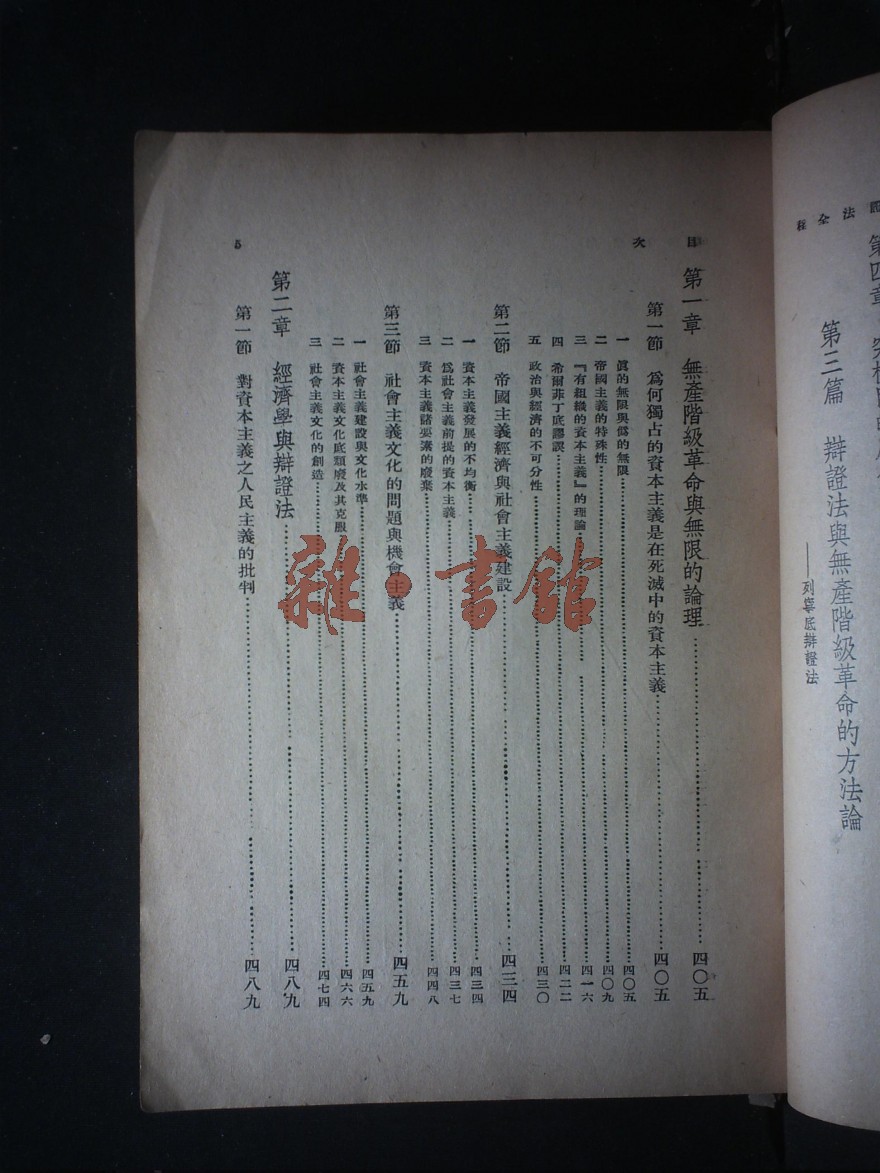 法全程
第四章
第三篇 辯證法與無產階級革命的方法論
——列寧底辯證法
目次
第一章 無產階級革命與無限的論理……四〇五
第一節 爲何獨占的資本主義是在死滅中的資本主義……四〇五
一 眞的無限與僞的無限……四〇五
二 帝國主義的特殊性……四〇九
三 『有組織的資本主義』的理論……四一六
四 希爾菲丁底謬誤……四二二
五 政治與經濟的不可分性……四三〇
第二節 帝國主義經濟與社會主義建設……四三四
一 資本主義發展的不均衡……四三四
二 爲社會主義前提的資本主義……四三七
三 資本主義諸要素的廢棄……四四八
第三節 社會主義文化的問題與機會主義……四五九
一 社會主義建設與文化水準……四五九
二 資本主義文化底頹廢及其克服……四六六
三 社會主義文化的創造……四七四
第二章 經濟學與辯證法……四八九
第一節 對資本主義之人民主義的批判……四八九
5
雜·書館